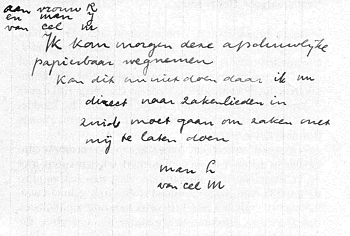 aan vrouw R
en man J
van cel M
Ik kom morgen deze afschuwelijke
papierbaar wegnemen
kan dit nu niet doen daar ik nu
direct naar zakenlieden in
zuid moet gaan om zaken met
mij te laten doen
man L
van cel M